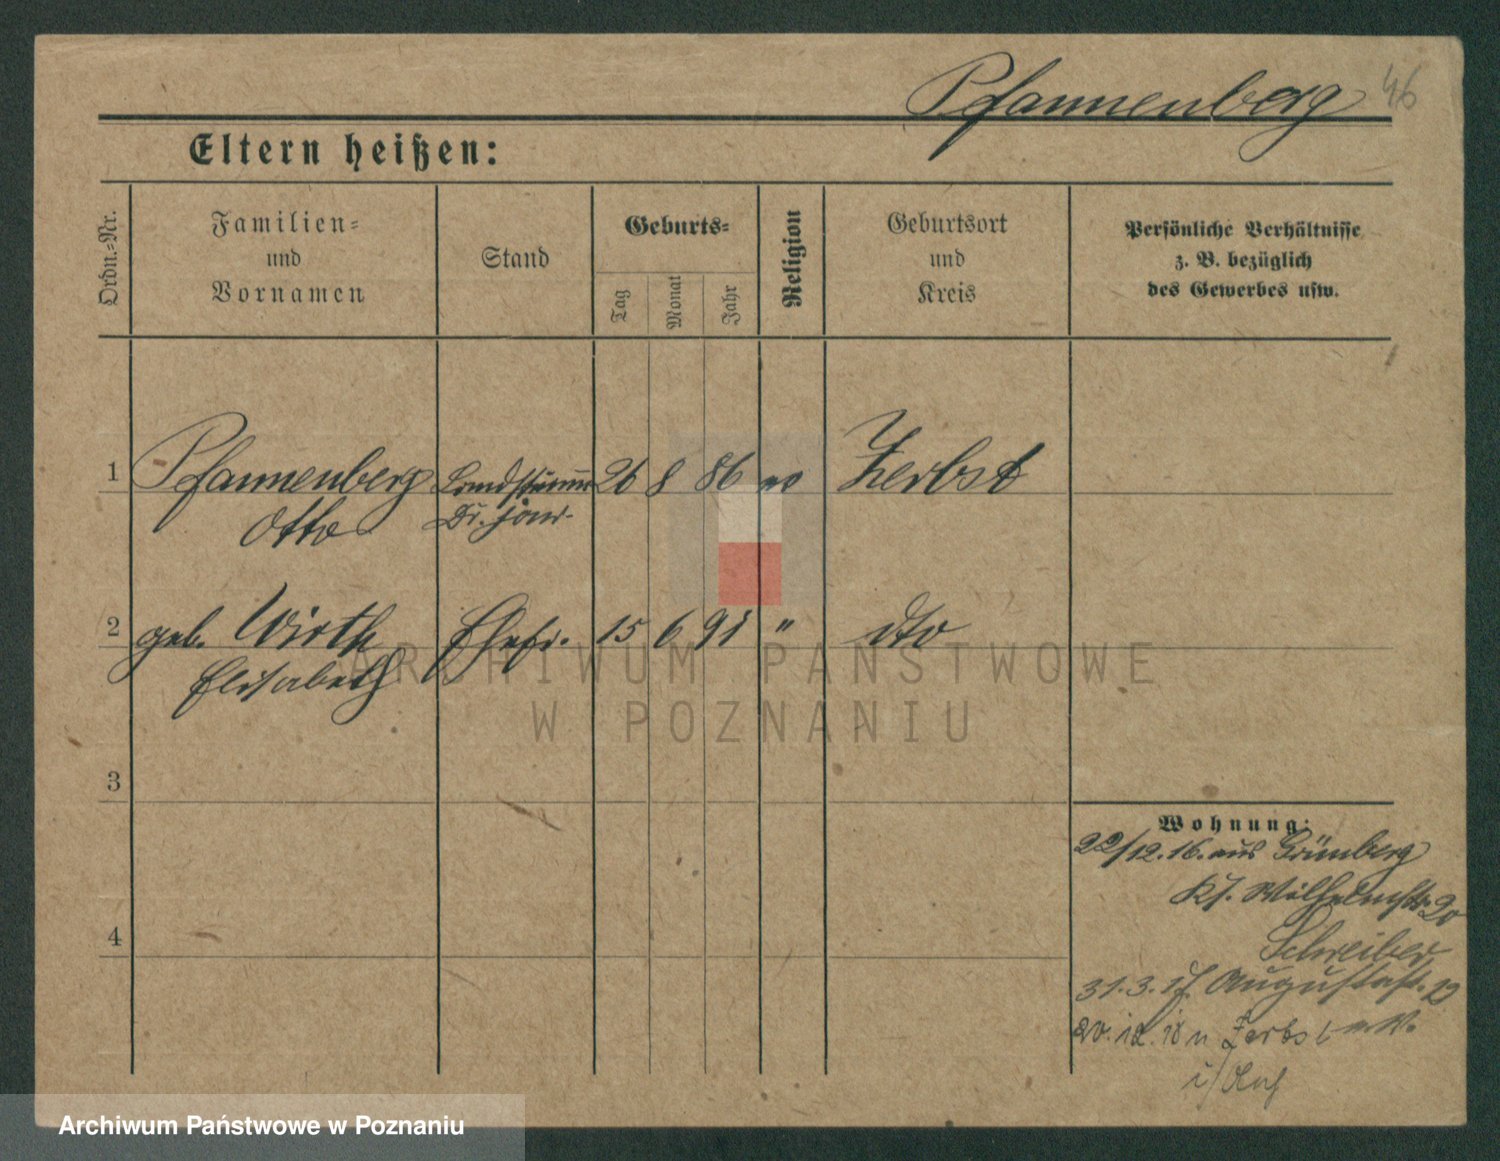 Pfannenberg 46
Eltern heißen:
Ordn.-Nr.
Familien- und Vornamen
Stand
Geburts-
Tag
Monat
Jahr
Religion
Geburtsort und Kreis
Persönliche Verhältnisse z. B. bezüglich des Gewerbes usw.
1 Pfannenberg Landsturmm 26 8 86 ev Zerbst
Otto Dr. jur.
2 geb. Wirth Ehefr. 15 6 91 " dto
Elisabeth
3
Wohnung:
22/12.16. aus Grünberg
Kr. Wilhelmstr. 20
Schreiber
4
31.3.17 Augustastr. 12
20.12.18 n Zerbst
ARCHIWUM PAŃSTWOWE
W POZNANIU
Archiwum Państwowe w Poznaniu